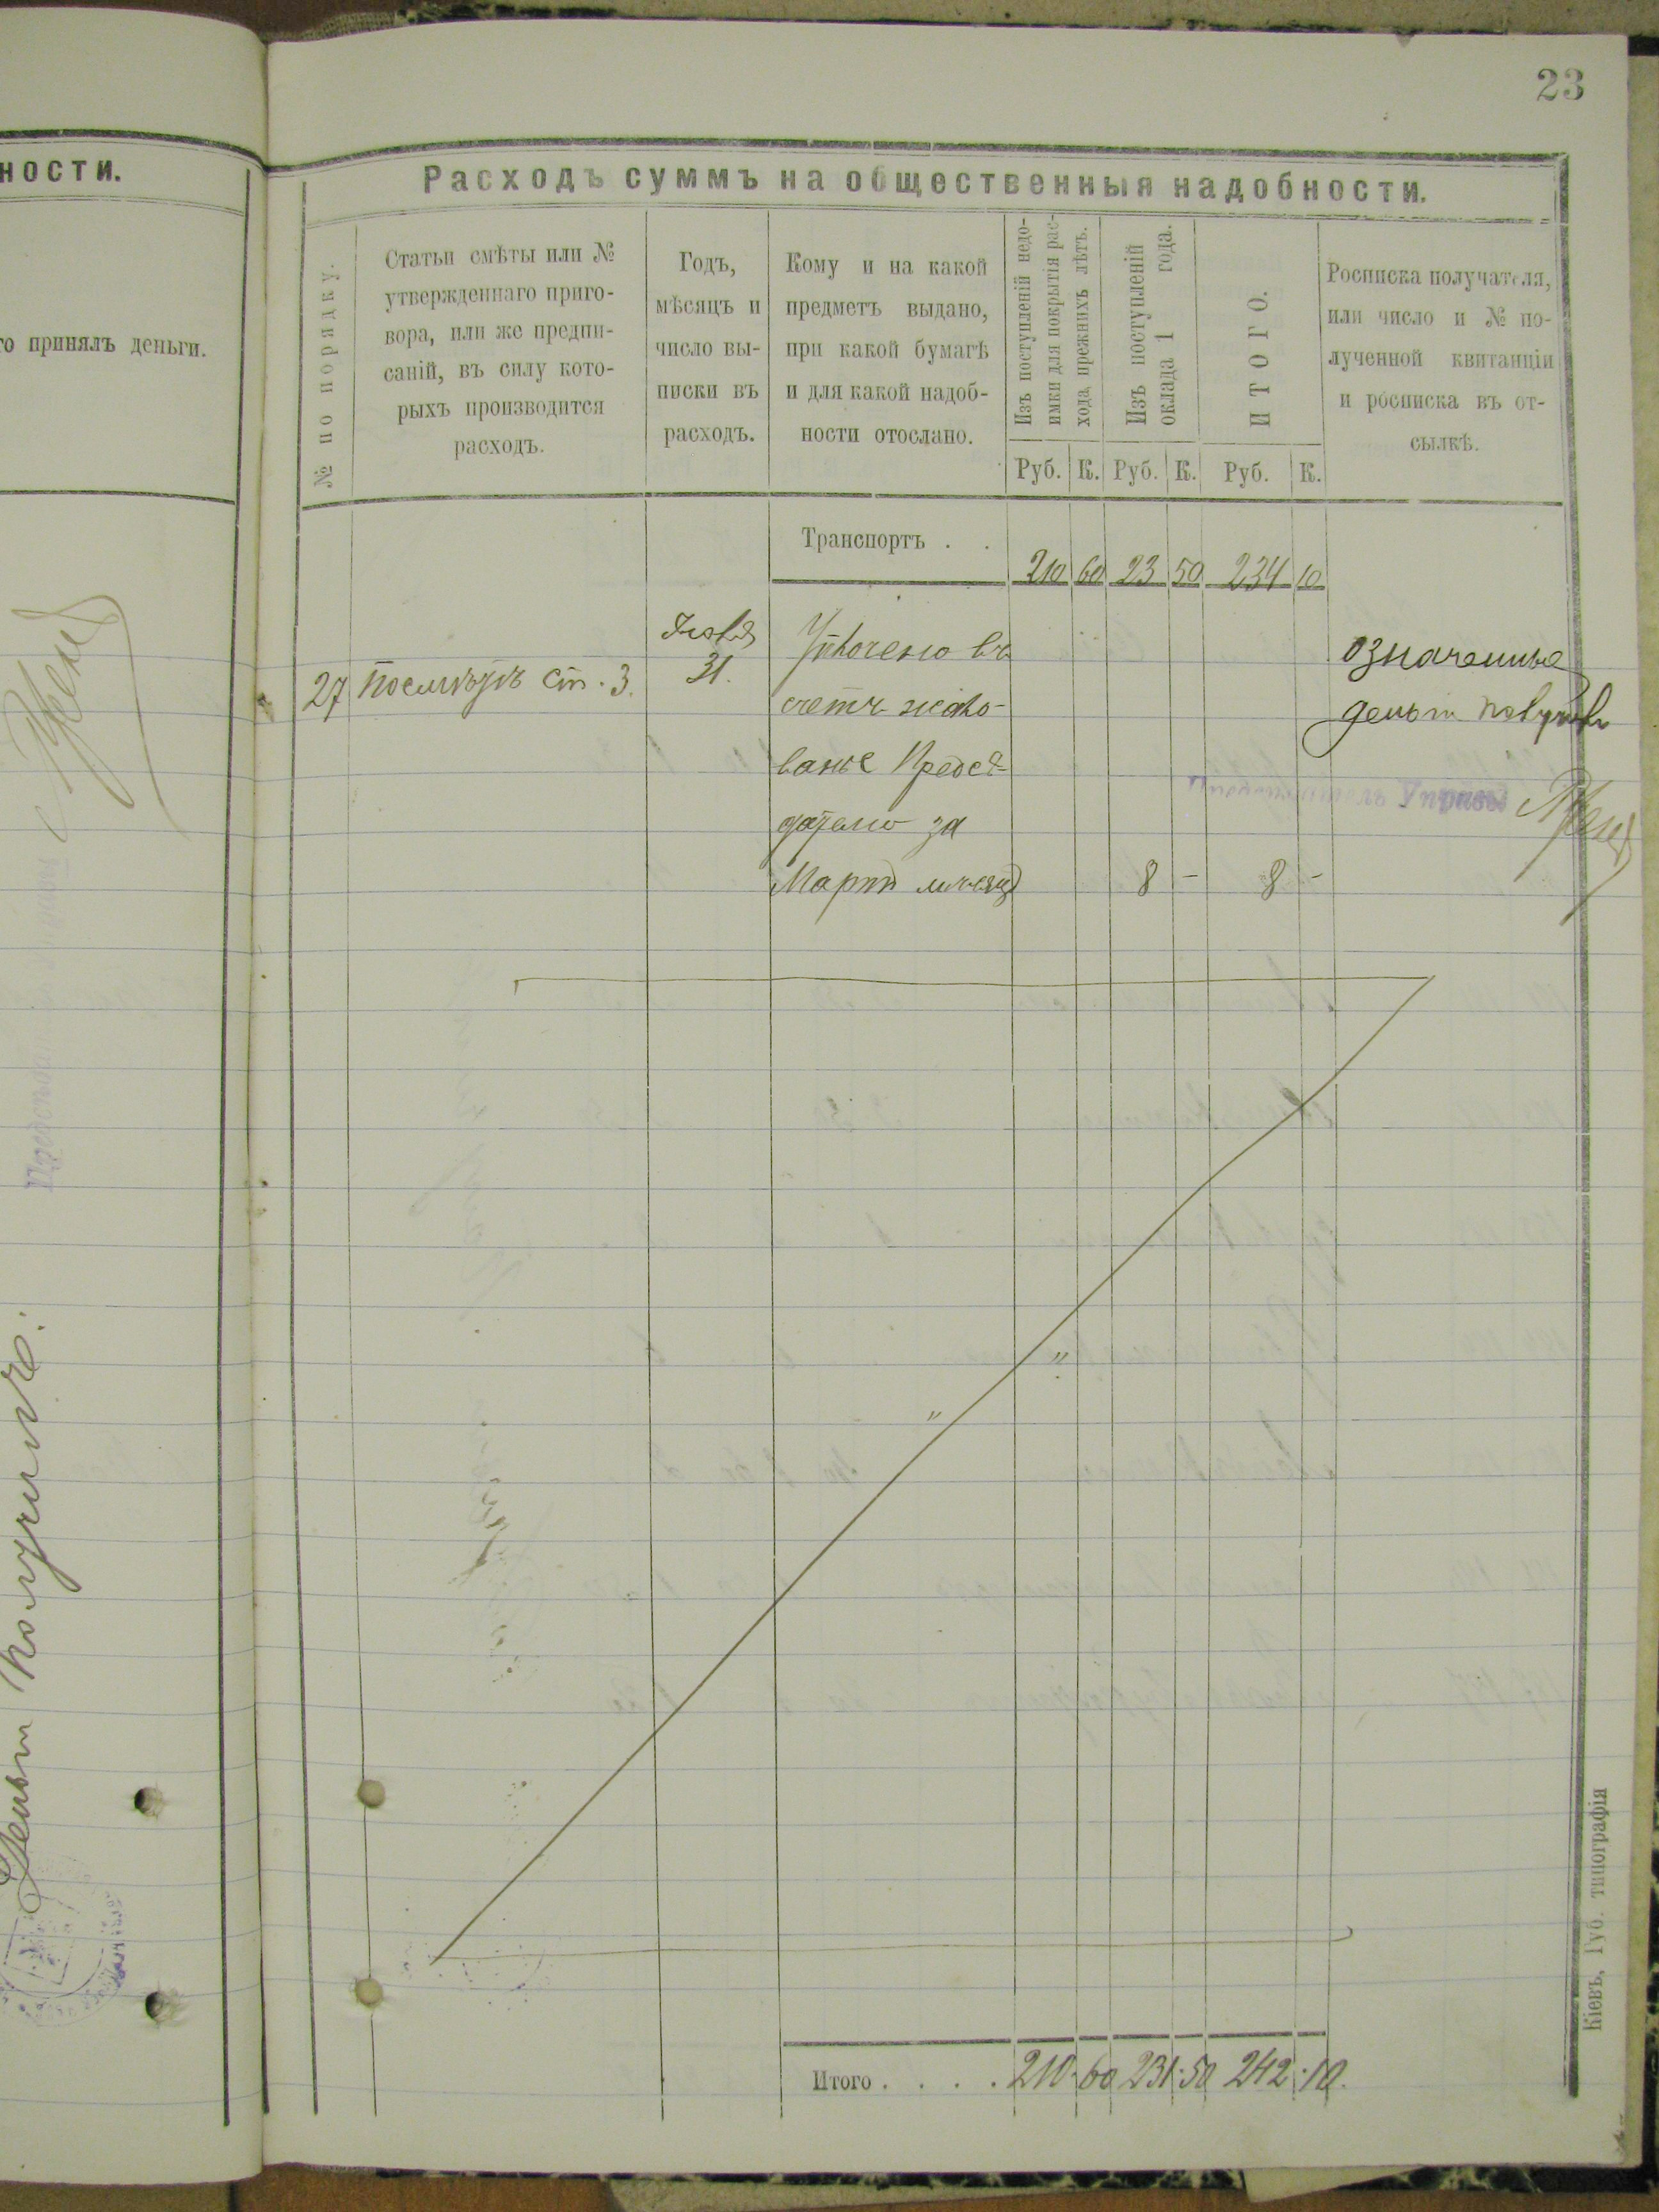 23
ности.
го принялъ деньги.
Деньги получилъ.
Расходъ суммъ на общественныя надобности.
№ по порядку.
Статьи смѣты или №
утвержденнаго приго-
вора, или же предпи-
саній, въ силу кото-
рыхъ производится
расходъ.
Годъ,
мѣсяцъ и
число вы-
писки въ
расходъ.
Кому и на какой
предметъ выдано,
при какой бумагѣ
и для какой надоб-
ности отослано.
Изъ поступленій недо-
имки для покрытія рас-
хода прежнихъ лѣтъ.
Изъ поступленій
оклада 1 года.
ИТОГО.
Росписка получателя,
или число и № по-
лученной квитанціи
и росписка въ от-
сылкѣ.
Руб. К. Руб. К. Руб. К.
Транспортъ . . 210 60 23 50 234 10
Іюля
27 по смѣтѣ ст. 3. 31. Уплочено въ
счетъ жало-
ванье Предсѣ-
дателю за
Мартъ мѣсяцъ 8 - 8 -
означенные
деньги получилъ
Управы
Итого . . . . 210 60 231 50 242 10.
Кіевъ, Губ. типографія